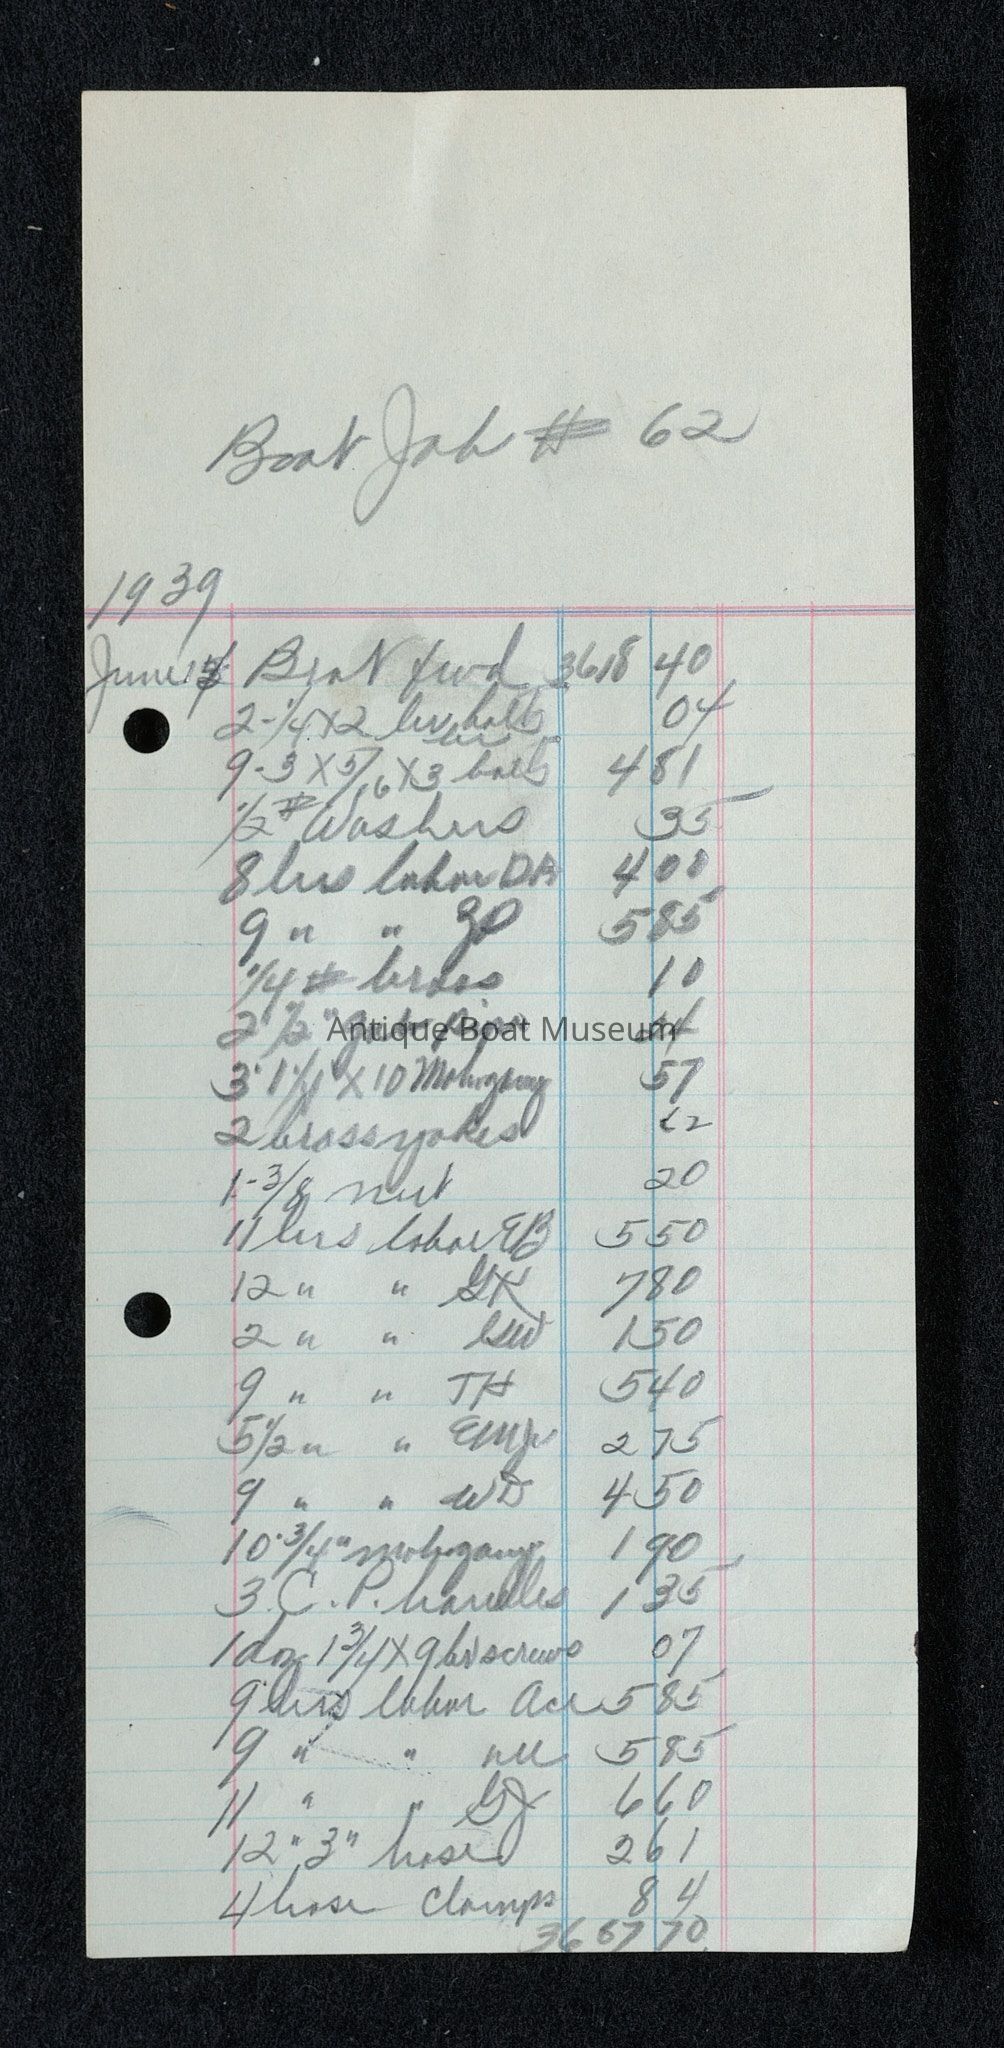 Boat Job # 62
1939
June 15 Brat fwd 3618 40
2-1/4 X 2 brs bolts 04
9-3 X 5/16 X 3 bolts 4 81
1/2 # Washers 35
8 hrs labor DA 4 00
9 " " 5 85
1/4 # brass 10
2' 1/2" galv. pipe
Antique Boat Museum
3' 1 1/4" X 10 Mahogany 57
2 brass yokes
1-3/8 nut 20
11 hrs labor EB 5 50
12 " " GK 7 80
2 " " GW 1 50
9 " " TH 5 40
5 1/2 " " 2 75
9 " " WD 4 50
10' 3/4" mahogany 1 90
3 C. P. handles 1 35
1 doz 1 3/4 X 9 br screws 07
9 hrs labor 5 85
9 " " 5 85
11 " " GJ 6 60
12" 3" hose 2 61
4 hose clamps 84
70